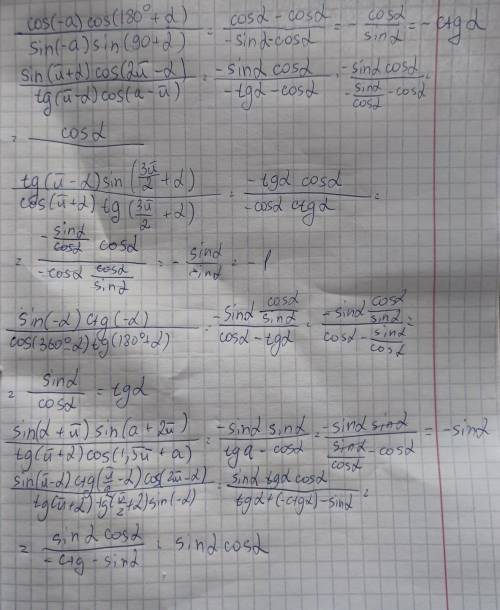 cos(-a) cos(180°+α) / sin(-a) sin(90+α) = cosα - cosα / -sinα-cosα = - cosα / sinα = - ctg α
sin(π+α) cos(2π-α) / tg(π-α) cos(a-π) = -sinα cosα / -tgα - cosα = -sinα cosα / - sinα/cosα - cosα =
= cosα
tg(π-α) sin(3π/2+α) / cos(π+α) tg(3π/2+α) = -tgα cosα / -cosα ctgα =
= - sinα/cosα cosα / -cosα cosα/sinα = - sinα / sinα = - 1
sin(-α) ctg(-α) / cos(360°-α) tg(180°+α) = -sinα cosα/sinα / cosα - tgα = -sinα cosα/sinα / cosα - sinα/cosα =
= sinα / cosα = tgα
sin(α+π) sin(a+2π) / tg(π+α) cos(1,5π+a) = -sinα sinα / tga - cosα = -sinα sinα / sinα/cosα - cosα = -sinα
sin(π-α) ctg(π/2-α) cos(2π-α) / tg(π+α) tg(π/2+α) sin(-α) = sinα tgα cosα / tgα+(-ctgα)-sinα =
= sinα cosα / -ctg - sinα = sinα cosα